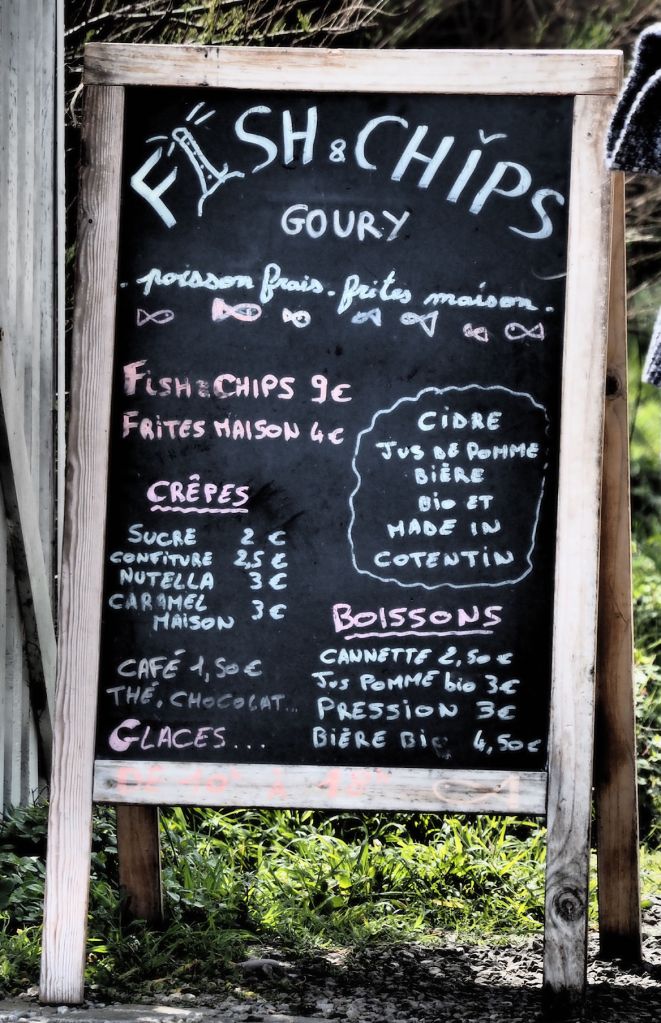 FISH & CHIPS
GOURY
. poisson frais . frites maison .
FISH & CHIPS 9€
FRITES MAISON 4€
CRÊPES
SUCRE 2€
CONFITURE 2,5€
NUTELLA 3€
CARAMEL
MAISON 3€
CAFÉ 1,50€
THÉ, CHOCOLAT...
GLACES...
CIDRE
JUS DE POMME
BIÈRE
BIO ET
MADE IN
COTENTIN
BOISSONS
CANNETTE 2,50€
JUS POMME bio 3€
PRESSION 3€
BIÈRE BIO 4,50€
DE 10h À 18h